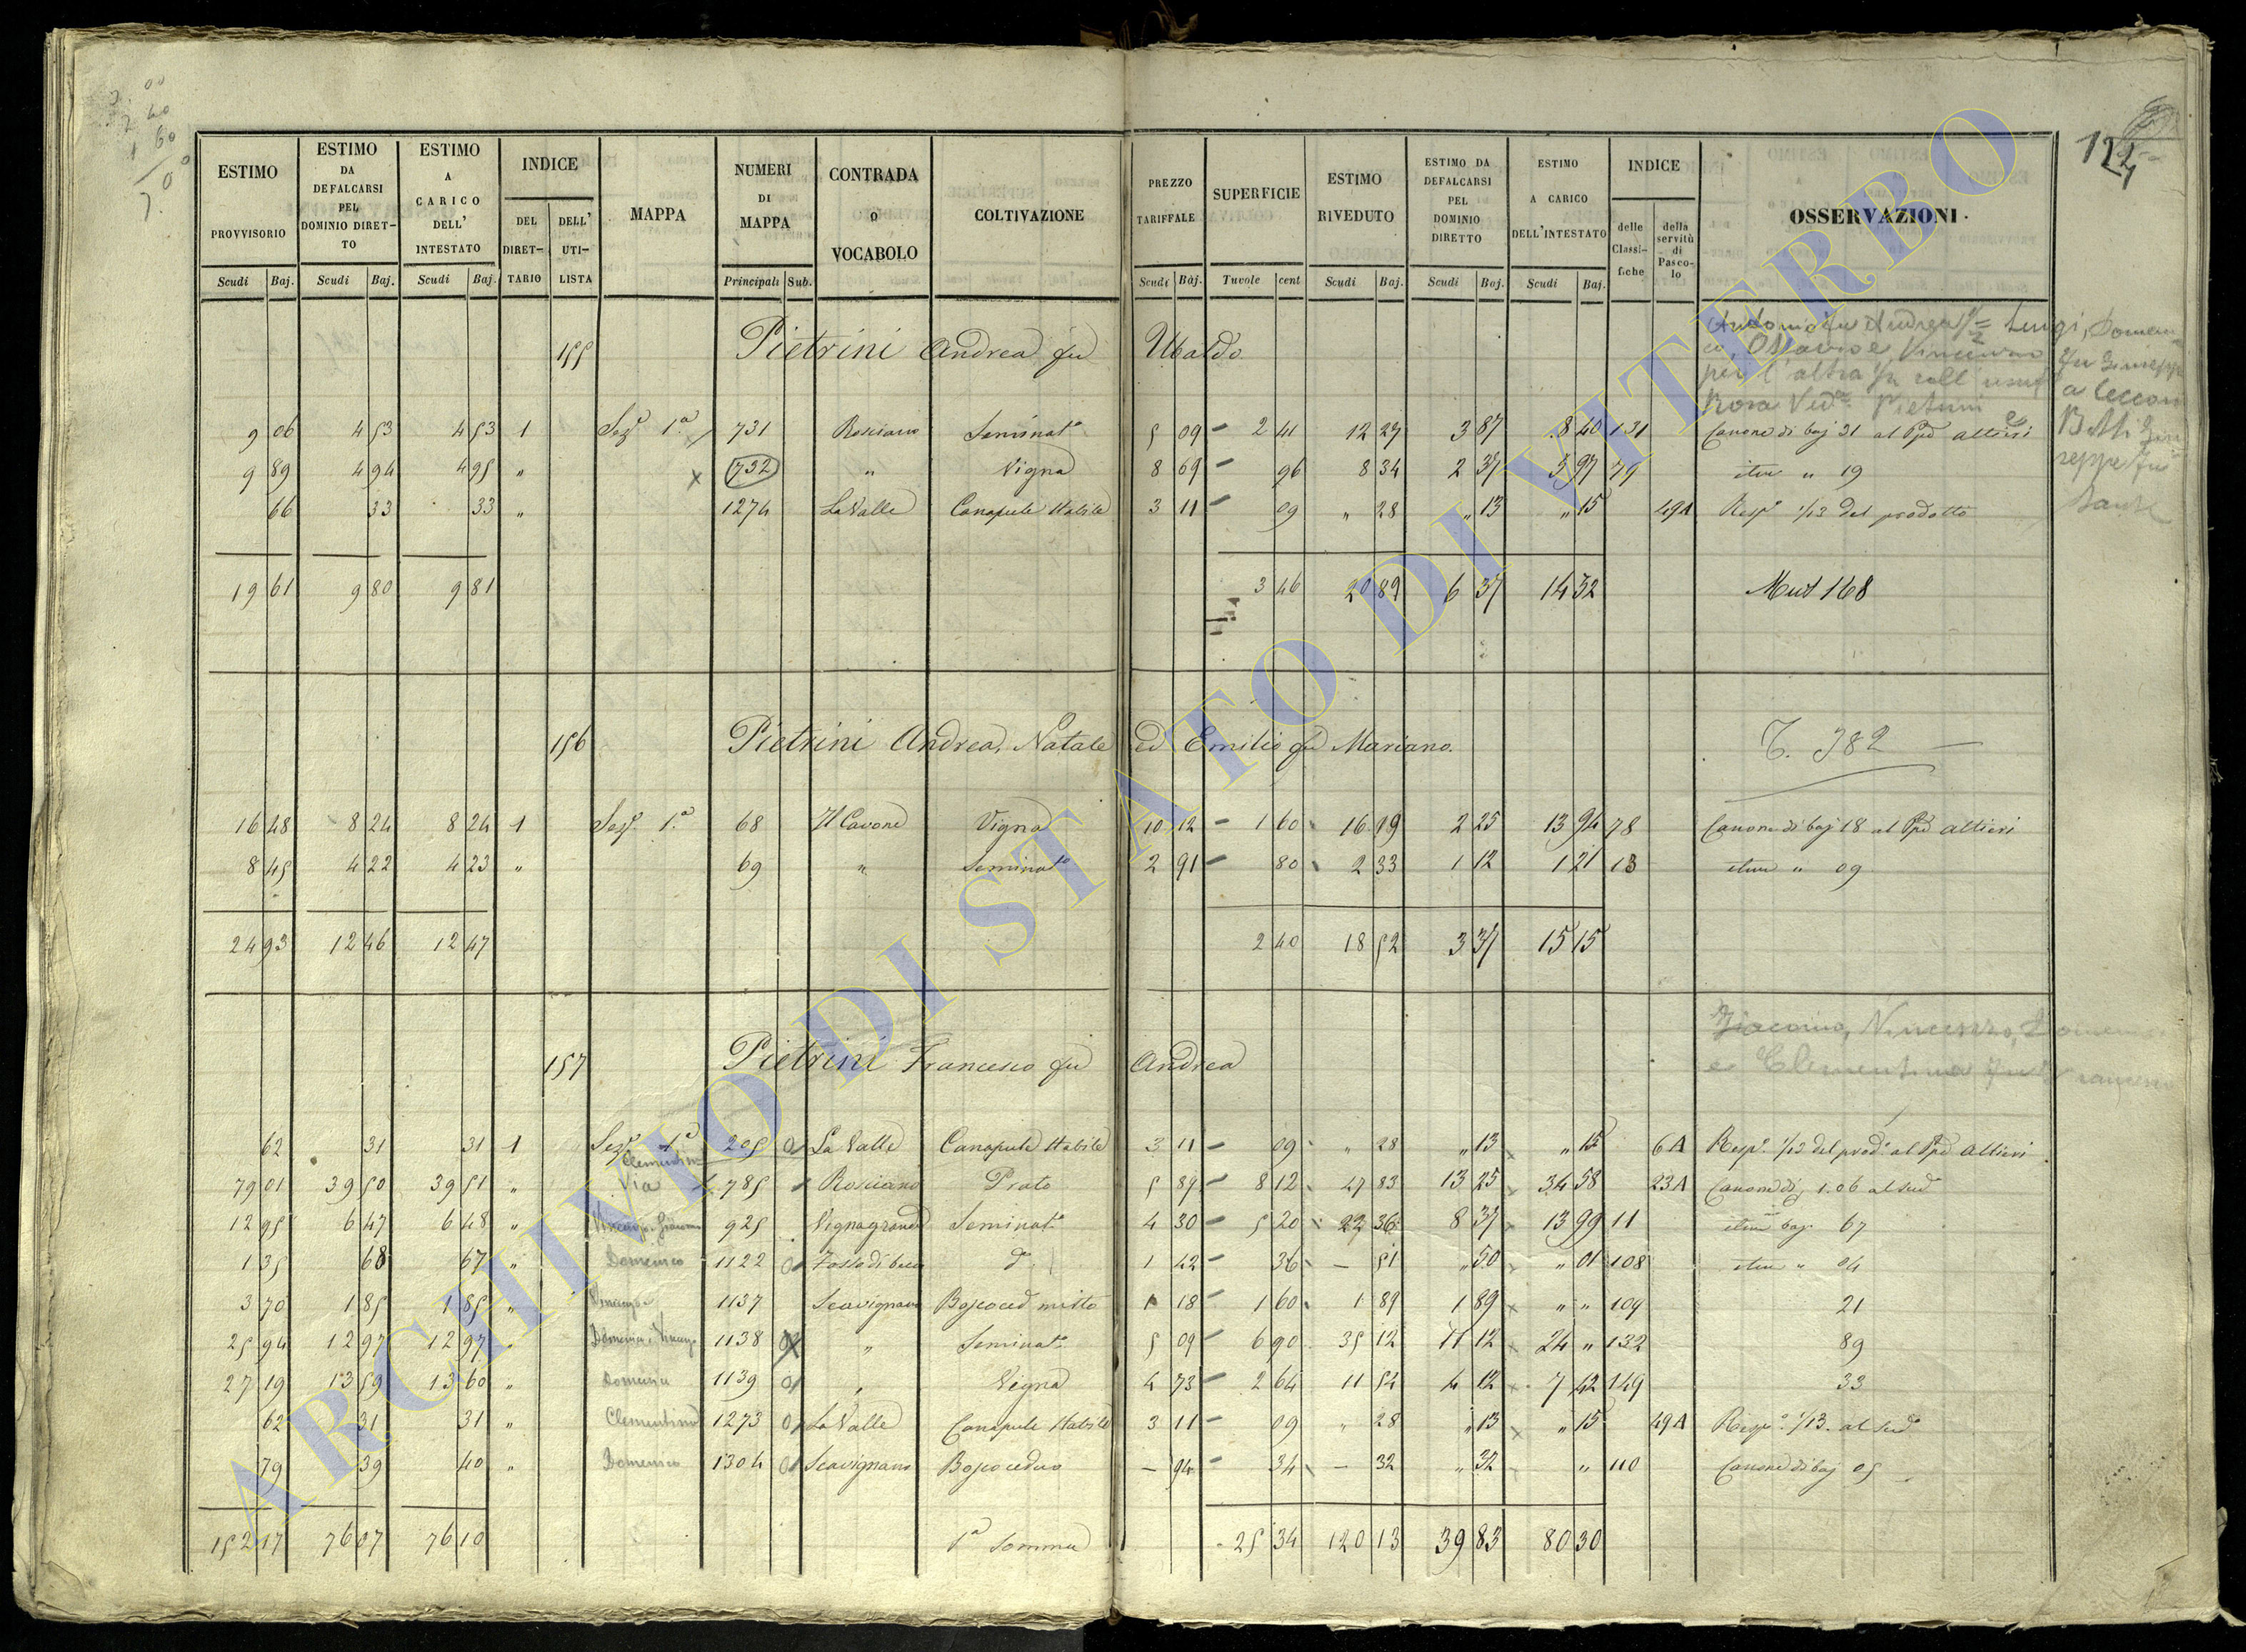 124
ESTIMO PROVVISORIO Scudi Baj.
ESTIMO DA DEFALCARSI PEL DOMINIO DIRETTO Scudi Baj.
ESTIMO A CARICO DELL' INTESTATO Scudi Baj.
INDICE DEL DIRETTARIO DELL' UTILISTA
MAPPA
NUMERI DI MAPPA Principali Sub.
CONTRADA o VOCABOLO
COLTIVAZIONE
PREZZO TARIFFALE Scudi Baj.
SUPERFICIE Tavole cent
ESTIMO RIVEDUTO Scudi Baj.
ESTIMO DA DEFALCARSI PEL DOMINIO DIRETTO Scudi Baj.
ESTIMO A CARICO DELL'INTESTATO Scudi Baj.
INDICE delle Classifiche della servitù di Pascolo
OSSERVAZIONI.
155 Pietrini Andrea fu Ubaldo
9 06 4 53 4 53 1 Sez. 1a 731 Rosciano Seminato 5 09 2 41 12 27 3 87 8 40 131 Canone di baj 31 al Ppe Altieri
9 89 4 94 4 95 " 732 " Vigna 8 69 96 8 34 2 37 5 97 79 " 19
66 33 33 " 1274 La Valle Canapule stabile 3 11 09 " 28 " 13 " 15 49A Resp. 1/13 del prodotto
19 61 9 80 9 81 3 46 20 89 6 37 14 32 Mut 168
156 Pietrini Andrea, Natale ed Emilio fu Mariano.
T. 382
16 48 8 24 8 24 1 Sez. 1a 68 Il Cavone Vigna 10 12 1 60 16 19 2 25 13 94 78 Canone di baj 18 al Ppe Altieri
8 45 4 22 4 23 " 69 " Seminato 2 91 80 2 33 1 12 1 21 13 " 09
24 93 12 46 12 47 2 40 18 52 3 37 15 15
157 Pietrini Francesco fu Andrea
Giacomo, Vincenzo,
e Clementina fu
62 31 31 1 Sez. 1a 205 La Valle Canapule stabile 3 11 09 " 28 " 13 " 15 6A Resp. 1/13 del prod. al Ppe Altieri
Clementina
79 01 39 50 39 51 " Via 785 Rosciano Prato 5 89 8 12 47 83 13 25 34 58 23A Canone di 1.06 al sud
12 95 6 47 6 48 " 925 Vignagrande Seminato 4 30 5 20 22 36 8 37 13 99 11 baj. 67
1 35 68 67 " Domenico 1122 d. 1 42 36 — 51 " 50 " 01 108 " 04
3 70 1 85 1 85 " 1137 Scavignano Bosco ced misto 1 18 1 60 1 89 1 89 " " 109 21
25 94 12 97 12 97 " 1138 " Seminato 5 09 6 90 35 12 11 12 24 " 132 89
27 19 13 59 13 60 " 1139 " Vigna 4 73 2 64 11 54 4 12 7 42 149 33
62 31 31 " Clementina 1273 La Valle Canapule stabile 3 11 09 " 28 " 13 " 15 49A Resp. 1/13. al sud
79 39 40 " Domenico 1304 Scavignano Bosco ceduo — 94 34 — 32 " 32 " 110 Canone di baj 05
152 17 76 07 76 10 1a Somma 25 34 120 13 39 83 80 30
ARCHIVIO DI STATO DI VITERBO